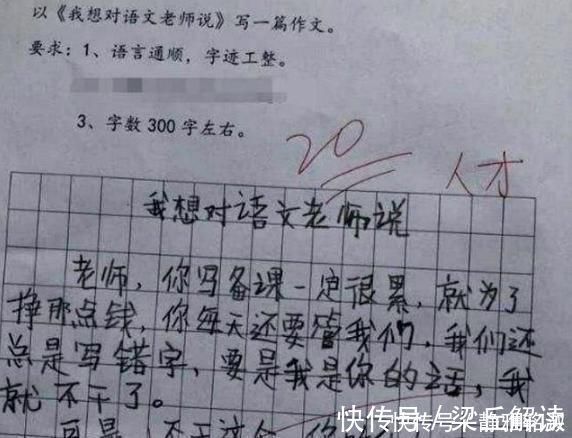 以《我想对语文老师说》写一篇作文。
要求：1、语言通顺，字迹工整。
3、字数 300 字左右。
20
人才
我想对语文老师说
老师，你写备课一定很累，就为了
挣那点钱，你每天还要管我们，我们还
总是写错字，要是我是你的话，我
就不干了。
可是 不干这个 你
快传号
快传号
解读